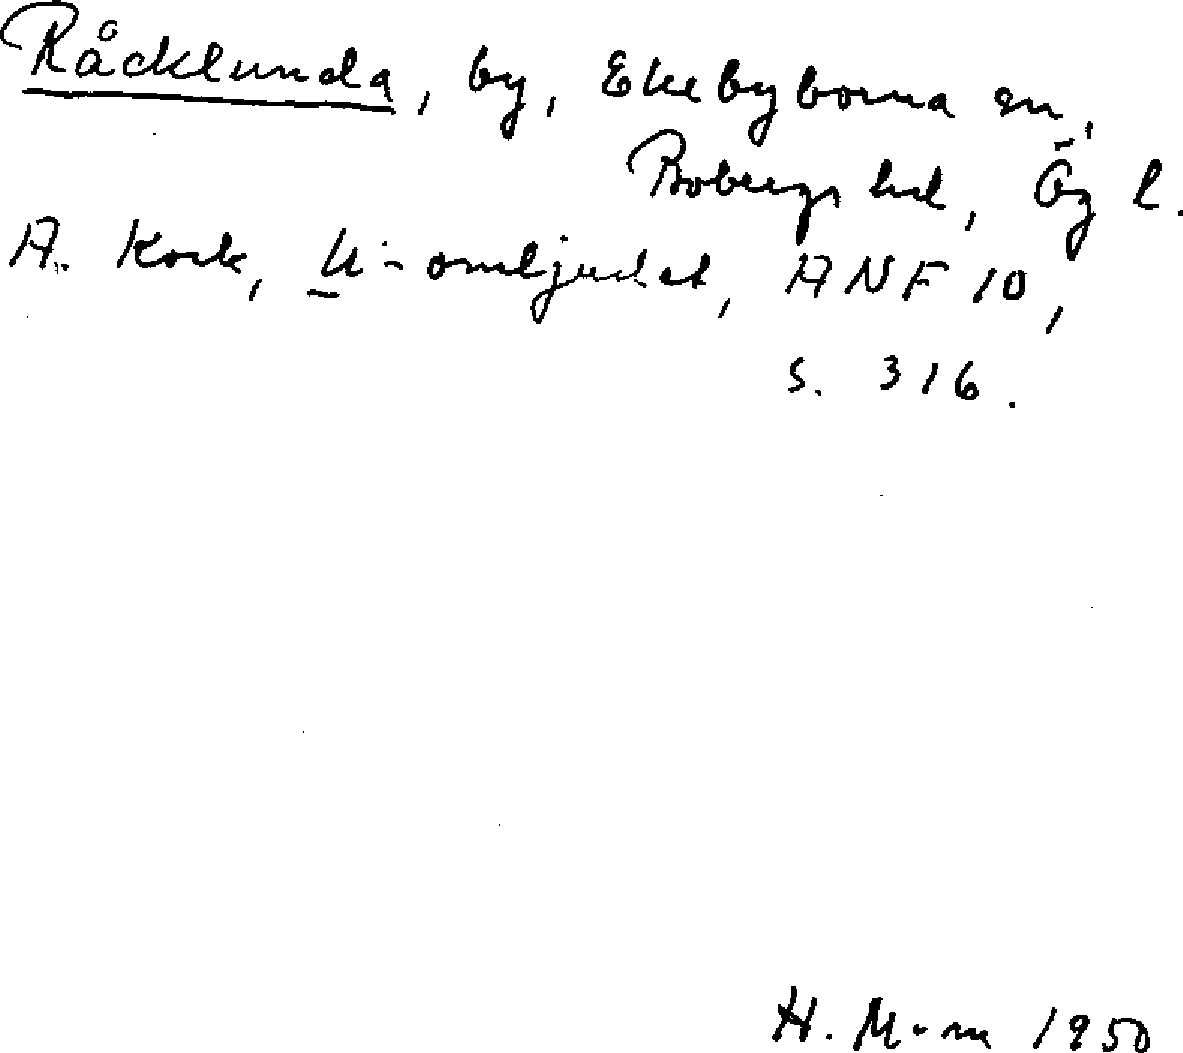 Råcklunda, by, Ekebyborna sn,
Bobergs hd, Ög l.
A. Kock, U-omljudet, ANF 10,
s. 316.
H. M-m 1950